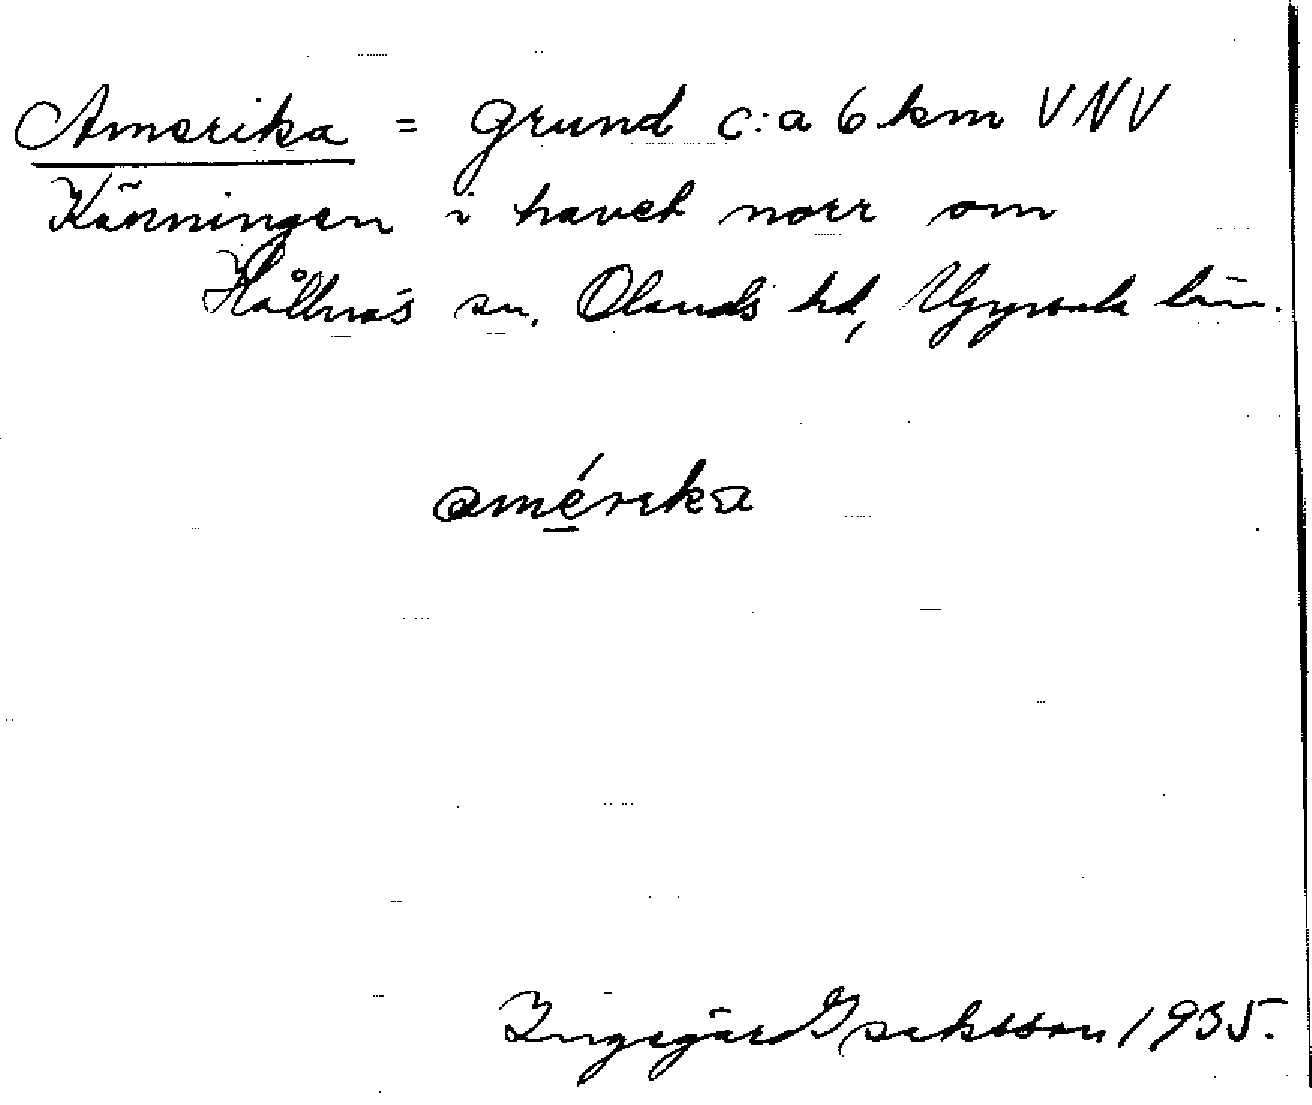 Amerika = grund c:a 6 km VNV
Känningen i havet norr om
Hållnäs sn. Olands hd, Uppsala län.
amérika
Ingegärd Isaksson 1935.